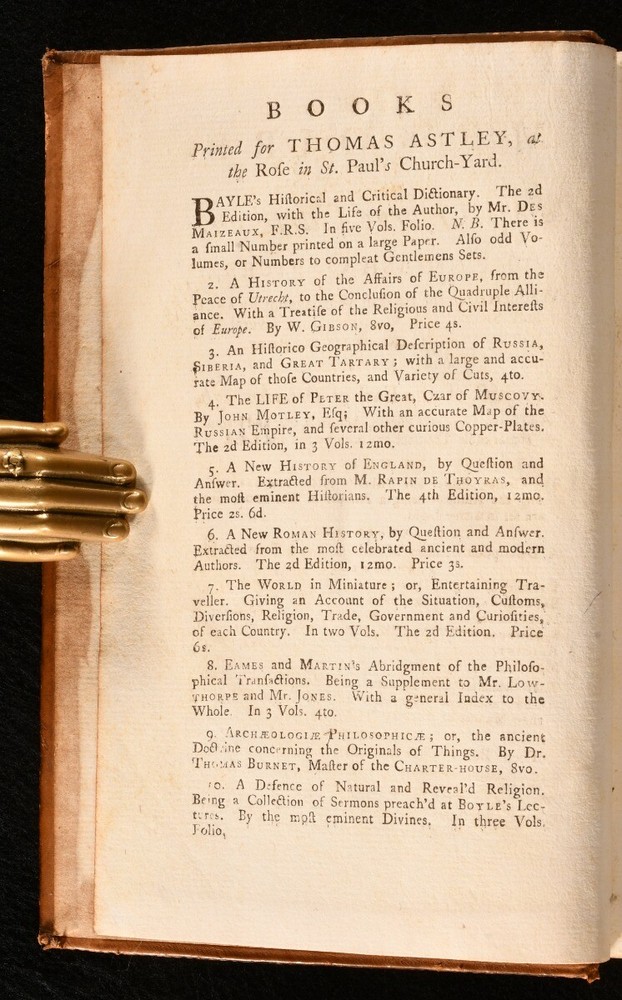 BOOKS
Printed for THOMAS ASTLEY, at
the Roſe in St. Paul's Church-Yard.
BAYLE's Hiſtorical and Critical Dictionary. The 2d
Edition, with the Life of the Author, by Mr. DES
MAIZEAUX, F.R.S. In five Vols. Folio. N. B. There is
a ſmall Number printed on a large Paper. Alſo odd Vo-
lumes, or Numbers to compleat Gentlemens Sets.
2. A HISTORY of the Affairs of EUROPE, from the
Peace of Utrecht, to the Concluſion of the Quadruple Alli-
ance. With a Treatiſe of the Religious and Civil Intereſts
of Europe. By W. GIBSON, 8vo, Price 4s.
3. An Hiſtorico Geographical Deſcription of RUSSIA,
SIBERIA, and GREAT TARTARY; with a large and accu-
rate Map of thoſe Countries, and Variety of Cuts, 4to.
4. The LIFE of PETER the Great, Czar of MUSCOVY.
By JOHN MOTLEY, Eſq; With an accurate Map of the
RUSSIAN Empire, and ſeveral other curious Copper-Plates.
The 2d Edition, in 3 Vols. 12mo.
5. A New HISTORY of ENGLAND, by Queſtion and
Anſwer. Extracted from M. RAPIN DE THOYRAS, and
the moſt eminent Hiſtorians. The 4th Edition, 12mo.
Price 2s. 6d.
6. A New ROMAN HISTORY, by Queſtion and Anſwer.
Extracted from the moſt celebrated ancient and modern
Authors. The 2d Edition, 12mo. Price 3s.
7. The WORLD in Miniature; or, Entertaining Tra-
veller. Giving an Account of the Situation, Cuſtoms,
Diverſions, Religion, Trade, Government and Curioſities,
of each Country. In two Vols. The 2d Edition. Price
6s.
8. EAMES and MARTIN's Abridgment of the Philoſo-
phical Tranſactions. Being a Supplement to Mr. LOW-
THORPE and Mr. JONES. With a general Index to the
Whole. In 3 Vols. 4to.
9. ARCHÆOLOGIÆ PHILOSOPHICÆ; or, the ancient
Doctrine concerning the Originals of Things. By Dr.
THOMAS BURNET, Maſter of the CHARTER-HOUSE, 8vo.
10. A Defence of Natural and Reveal'd Religion.
Being a Collection of Sermons preach'd at BOYLE's Lec-
tures. By the moſt eminent Divines. In three Vols.
Folio,